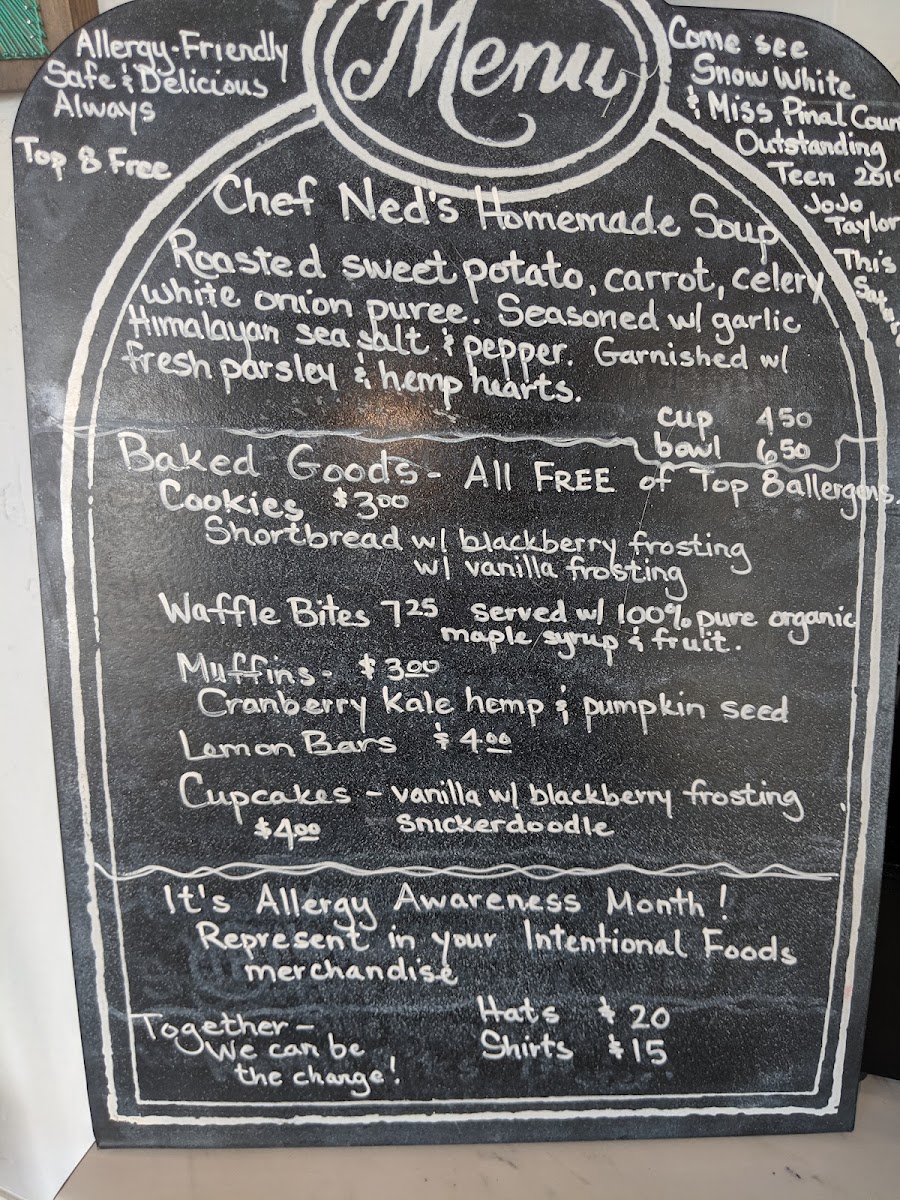 Menu
Allergy-Friendly
Safe & Delicious
Always
Top 8 Free
Come see
Snow White
& Miss Pinal Coun
Outstanding
Teen 2019
JoJo
Taylor
This
Chef Ned's Homemade Soup
Roasted sweet potato, carrot, celery
white onion puree. Seasoned w/ garlic
Himalayan sea salt & pepper. Garnished w/
fresh parsley & hemp hearts.
cup 4 50
bowl 6 50
Baked Goods - All FREE of Top 8 allergens.
Cookies $3 00
Shortbread w/ blackberry frosting
w/ vanilla frosting
Waffle Bites 7 25 served w/ 100% pure organic
maple syrup & fruit.
Muffins - $3 00
Cranberry kale hemp & pumpkin seed
Lemon Bars $4 00
Cupcakes - vanilla w/ blackberry frosting
$4 00 snickerdoodle
It's Allergy Awareness Month!
Represent in your Intentional Foods
merchandise
Hats $20
Together - Shirts $15
We can be
the change!